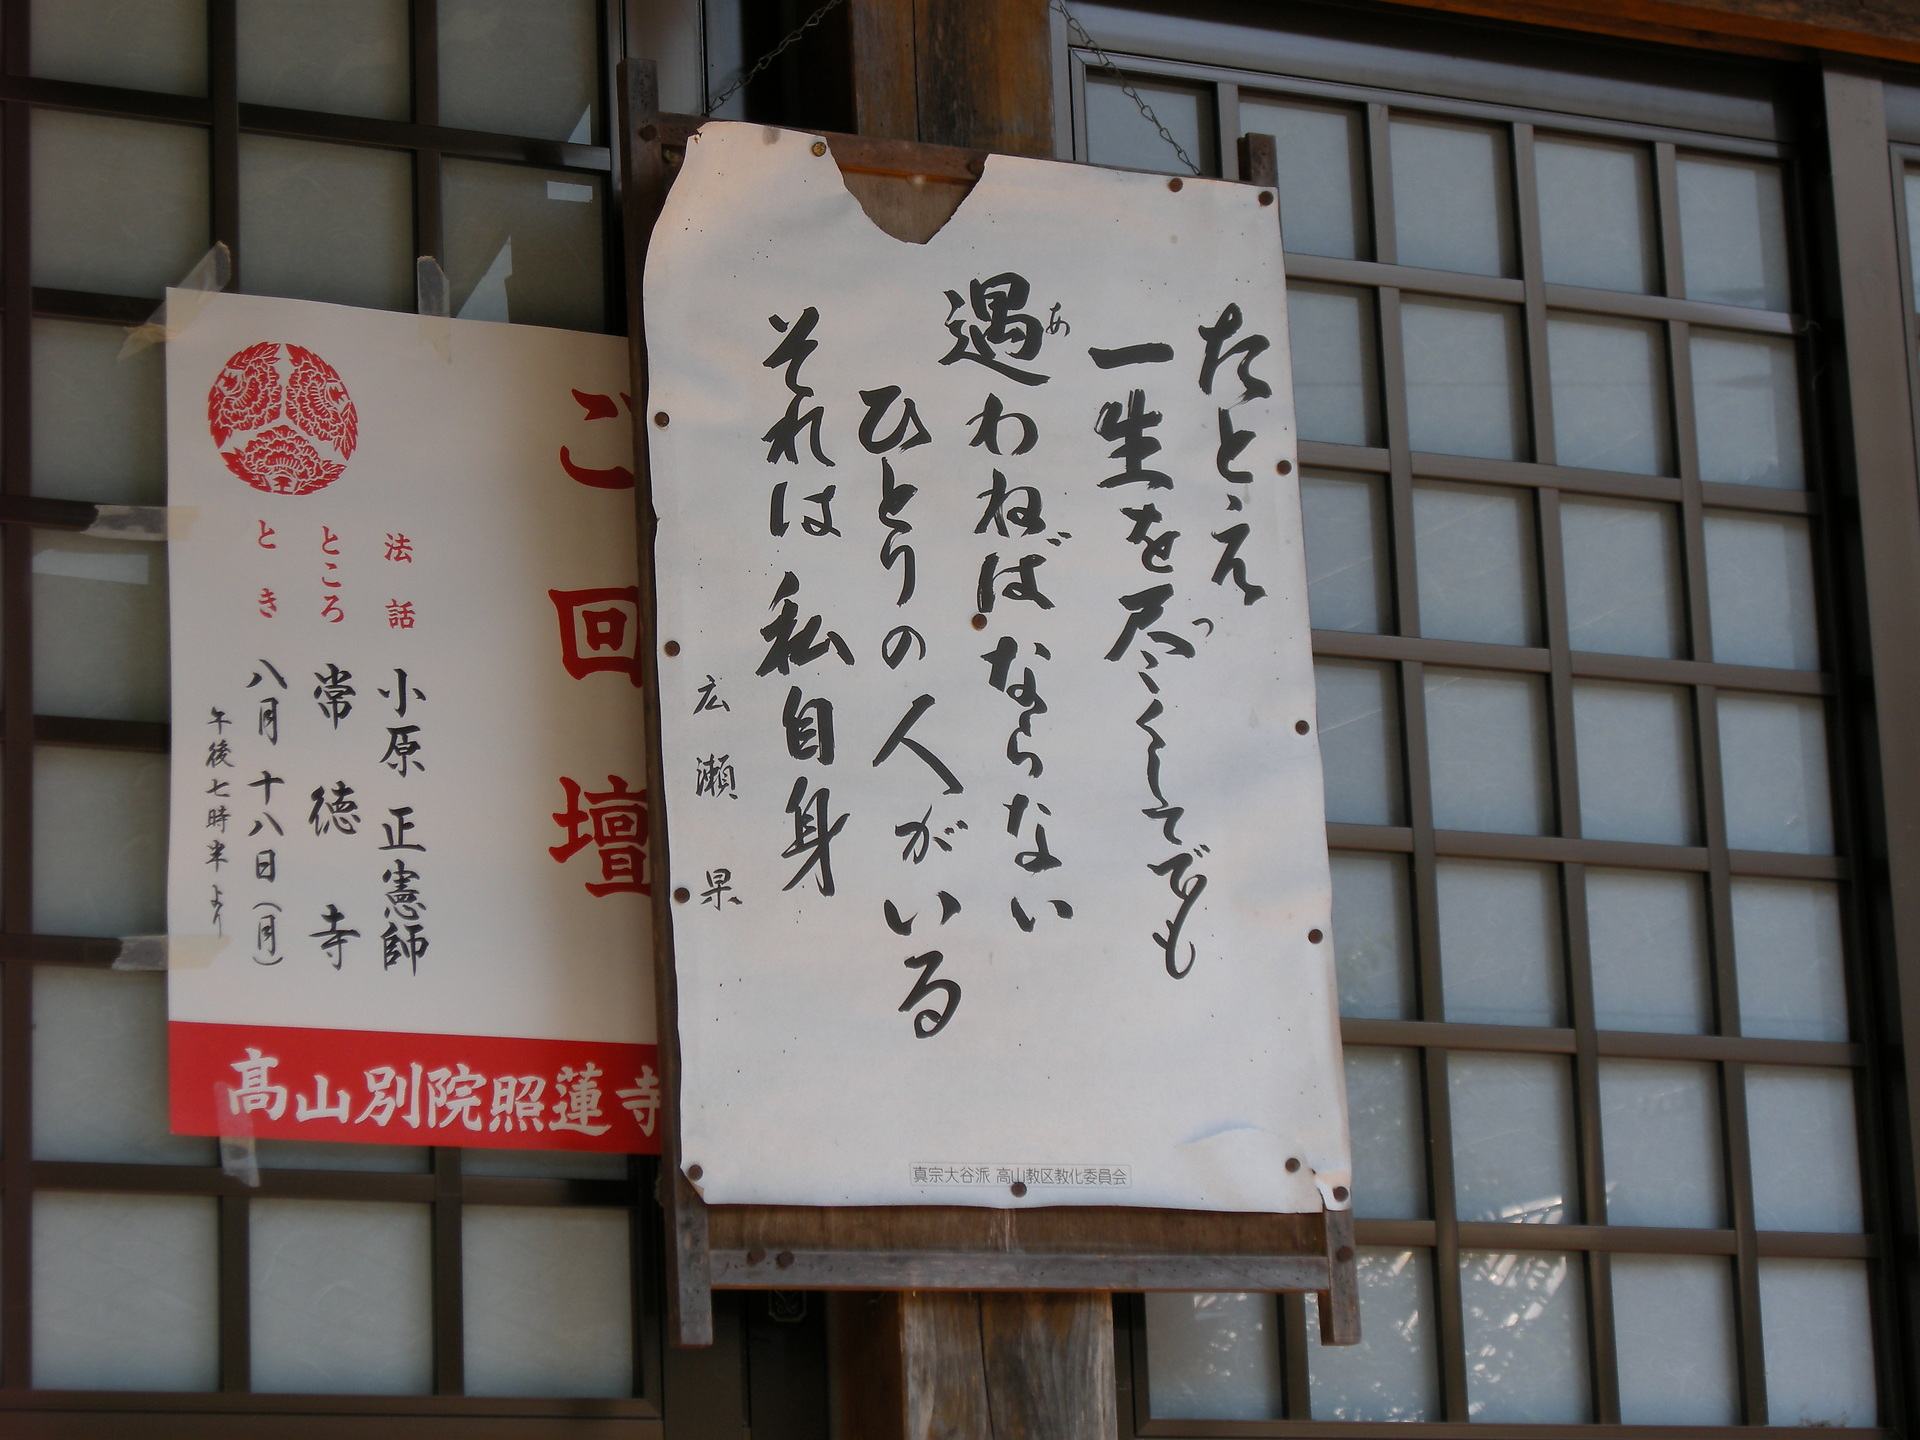 たとえ
一生を尽くしてでも
つ
遇わねばならない
あ
ひとりの人がいる
それは私自身
広瀬杲
真宗大谷派 高山教区教化委員会
ご回壇
法話 小原正憲師
ところ 常徳寺
とき 八月十八日(月)
午後七時半より
高山別院照蓮寺